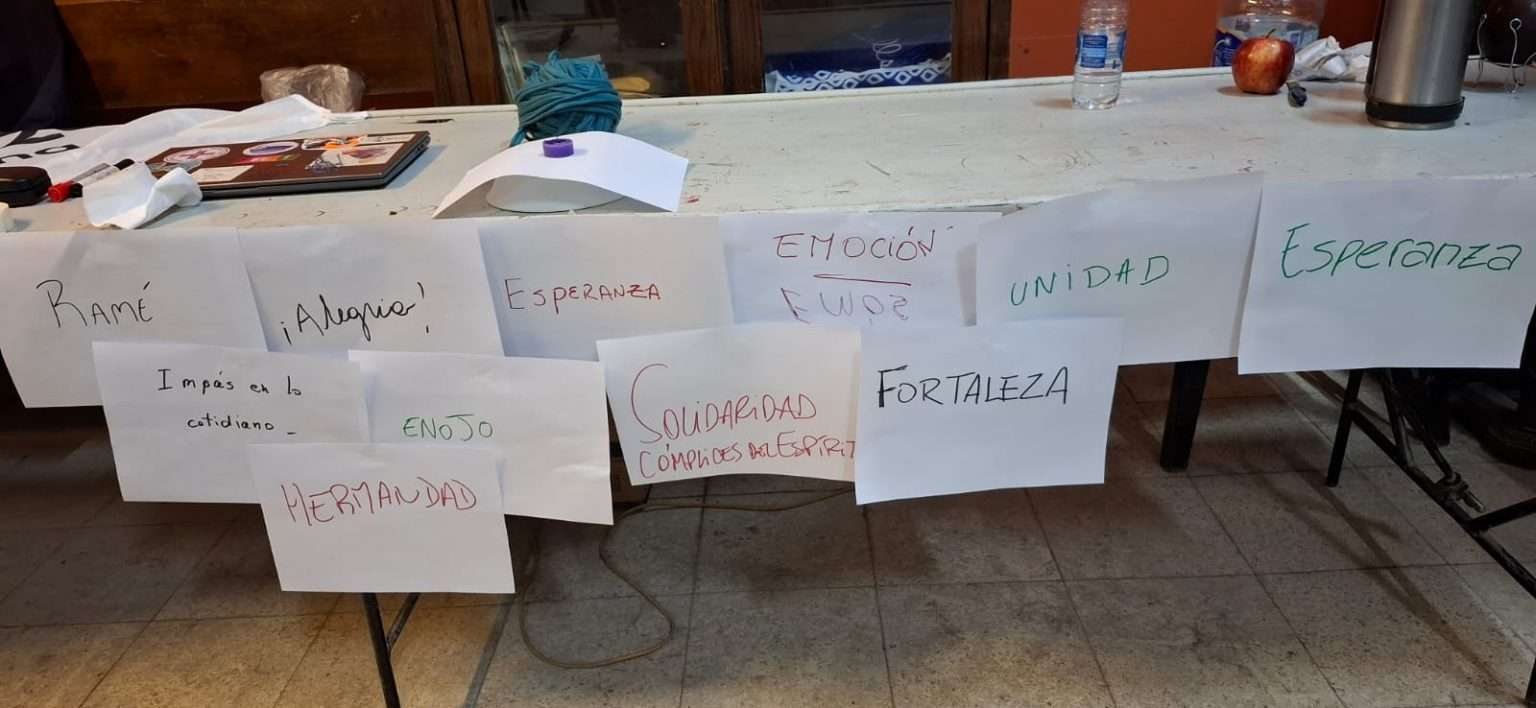 RAMÉ
¡Alegria!
ESPERANZA
EMOCIÓN
UNIDAD
Esperanza
Impás en lo
cotidiano -
ENOJO
SOLIDARIDAD
CÓMPLICES DEL ESPÍRIT
FORTALEZA
HERMANDAD